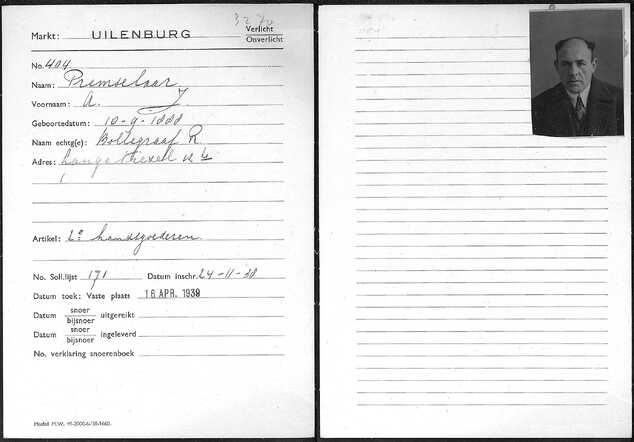 32
Markt: UILENBURG Verlicht
Onverlicht
No. 404
Naam: Premselaar
Voornaam: A. J
Geboortedatum: 10-9-1888
Naam echtg(e): Bollegraaf R
Adres:
1
Artikel: 2e handsgoederen.
No. Soll.lijst 171 Datum inschr. 24-11-38
Datum toek: Vaste plaats 18 APR. 1939
Datum snoer
bijsnoer uitgereikt
Datum snoer
bijsnoer ingeleverd
No. verklaring snoerenboek
Model M.W.